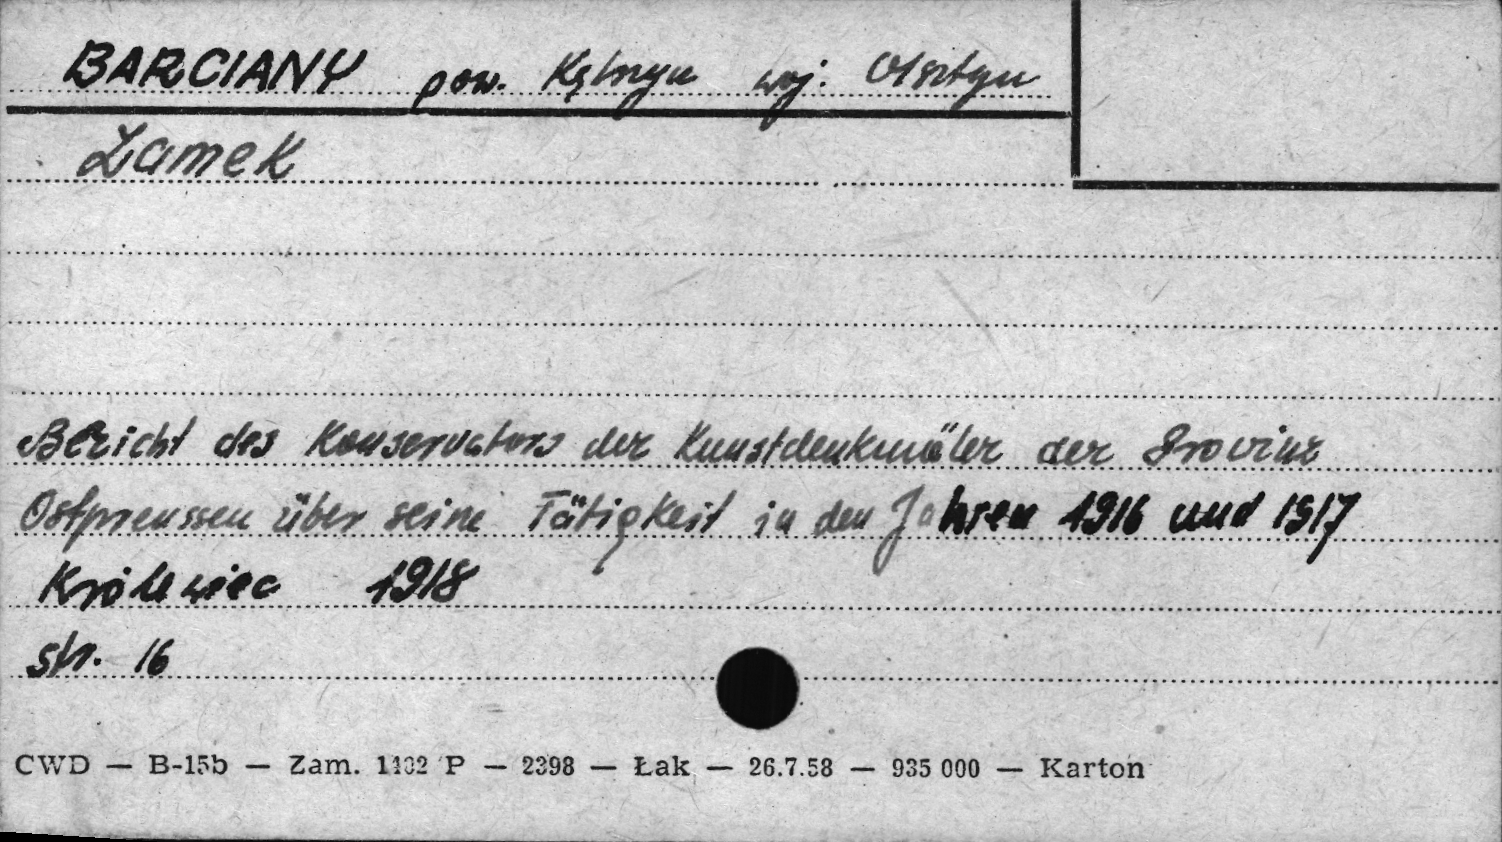 BARCIANY pow. Kętrzyn woj. Olsztyn
Zamek
Bericht des Konservators der Kunstdenkmäler der Provinz
Ostpreussen über seine Tätigkeit in den Jahren 1916 und 1917
Królewiec 1918
str. 16
CWD — B-15b — Zam. 1102 P — 2398 — Łak — 26.7.58 — 935 000 — Karton